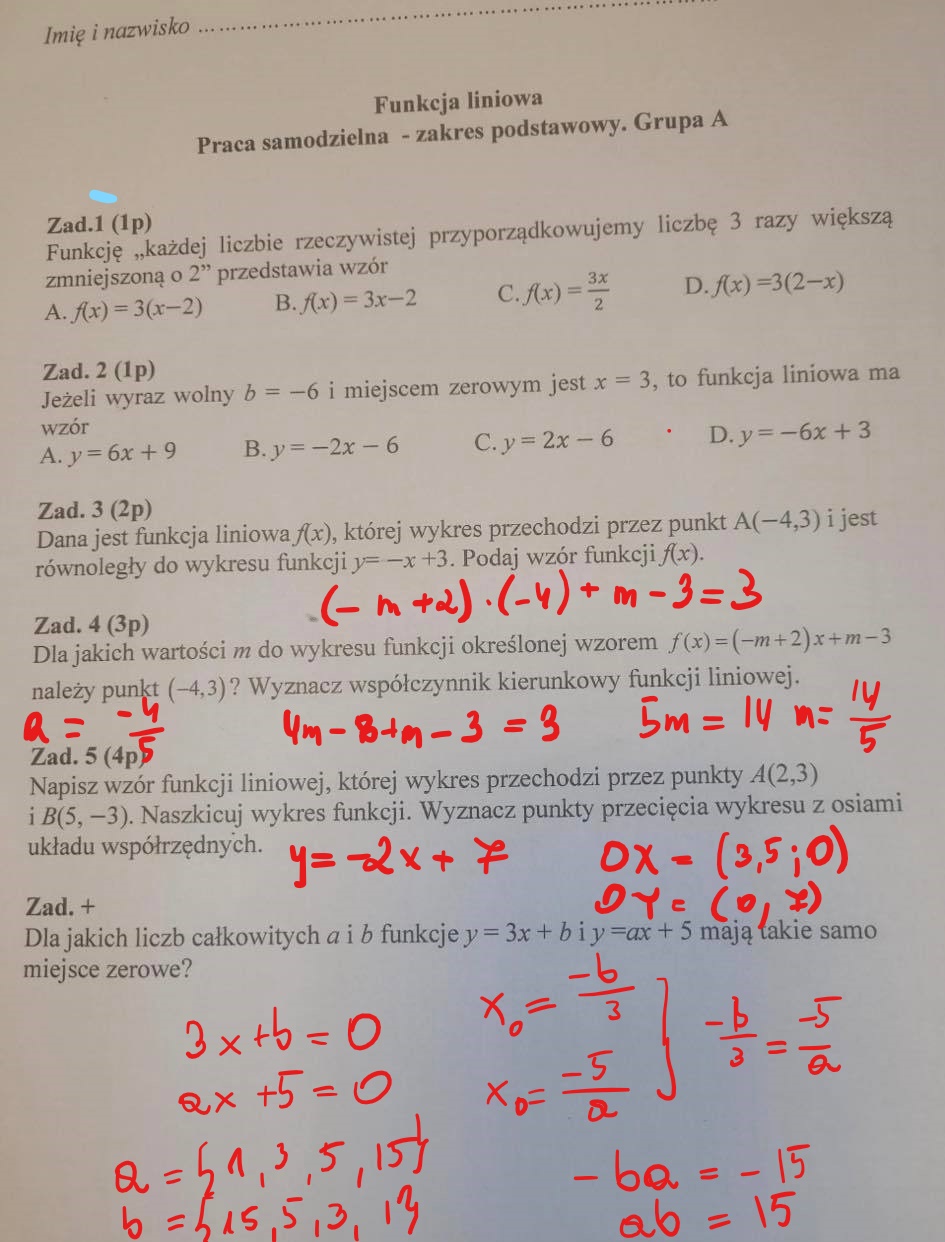 Imię i nazwisko ..........................................................................
Funkcja liniowa
Praca samodzielna - zakres podstawowy. Grupa A
Zad.1 (1p)
Funkcję „każdej liczbie rzeczywistej przyporządkowujemy liczbę 3 razy większą
zmniejszoną o 2” przedstawia wzór
A. f(x) = 3(x−2) B. f(x) = 3x−2 C. f(x) = 3x/2 D. f(x) =3(2−x)
Zad. 2 (1p)
Jeżeli wyraz wolny b = −6 i miejscem zerowym jest x = 3, to funkcja liniowa ma
wzór
A. y = 6x + 9 B. y = −2x − 6 C. y = 2x − 6 D. y = −6x + 3
Zad. 3 (2p)
Dana jest funkcja liniowa f(x), której wykres przechodzi przez punkt A(−4,3) i jest
równoległy do wykresu funkcji y= −x +3. Podaj wzór funkcji f(x).
(- m+2) · (-4) + m - 3 = 3
Zad. 4 (3p)
Dla jakich wartości m do wykresu funkcji określonej wzorem f(x)=(−m+2)x+m−3
należy punkt (−4,3)? Wyznacz współczynnik kierunkowy funkcji liniowej.
a = -4/5 4m - 8 + m - 3 = 3 5m = 14 m = 14/5
Zad. 5 (4p)
Napisz wzór funkcji liniowej, której wykres przechodzi przez punkty A(2,3)
i B(5, −3). Naszkicuj wykres funkcji. Wyznacz punkty przecięcia wykresu z osiami
układu współrzędnych.
y = -2x + 7 OX = (3,5 ; 0)
OY = (0, 7)
Zad. +
Dla jakich liczb całkowitych a i b funkcje y = 3x + b i y =ax + 5 mają takie samo
miejsce zerowe?
3x + b = 0 x₀ = -b/3 } -b/3 = -5/a
ax + 5 = 0 x₀ = -5/a
a = {1, 3, 5, 15} -ba = -15
b = {15, 5, 3, 1} ab = 15